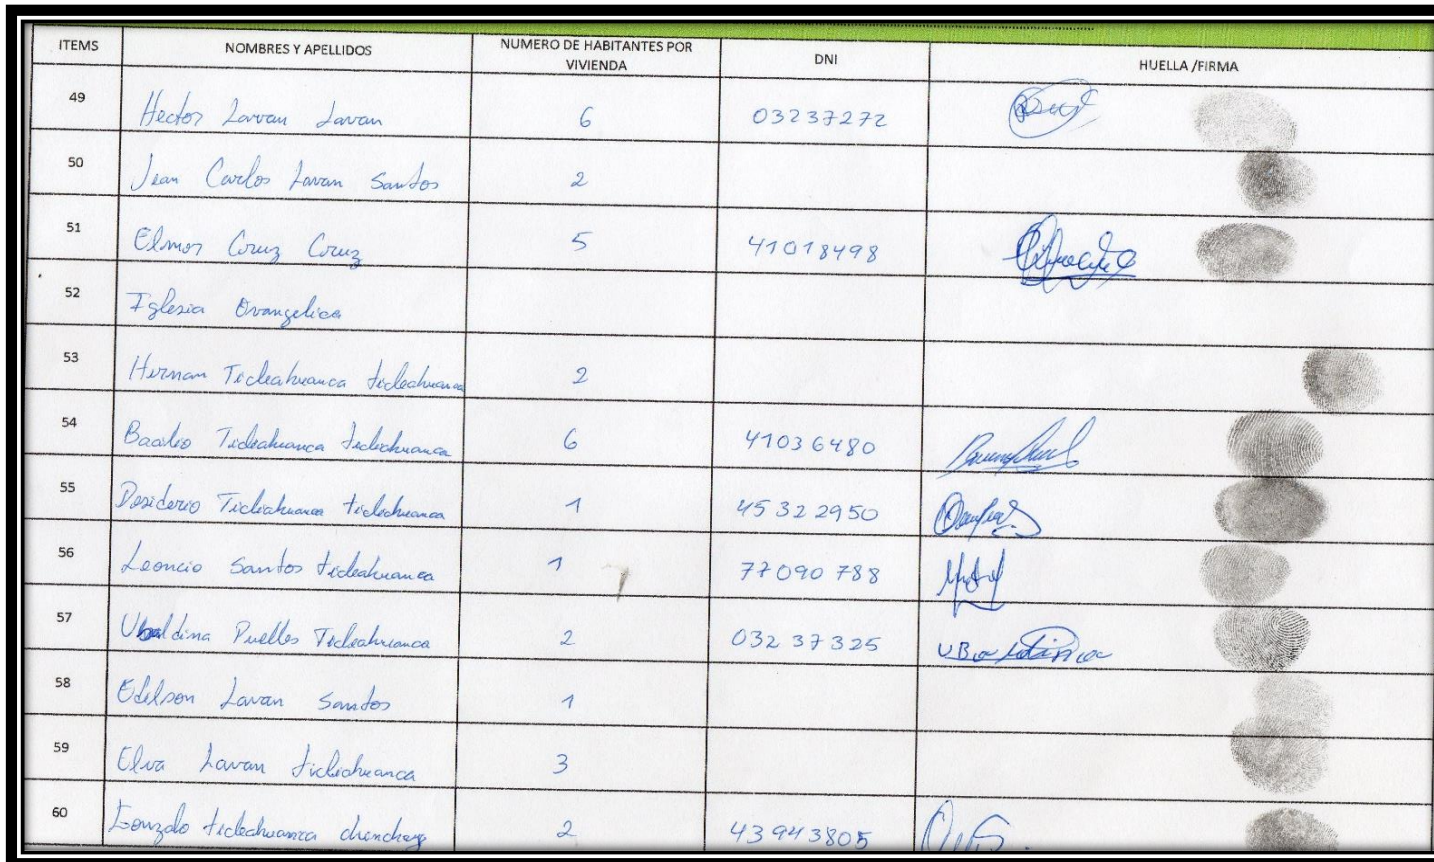 ITEMS NOMBRES Y APELLIDOS NUMERO DE HABITANTES POR VIVIENDA DNI HUELLA /FIRMA
49 Hector Lavan Lavan 6 03237272
50 Jean Carlos Lavan Santos 2
51 Elmer Cruz Cruz 5 41018498
52 Iglesia Evangelica
53 Hernan Ticliahuanca ticliahuanca 2
54 Ticliahuanca ticliahuanca 6 41036480
55 Desiderio Ticliahuanca ticliahuanca 1 45322950
56 Leoncio Santos ticliahuanca 1 77090788
57 Ubaldina Puelles Ticliahuanca 2 03237325
58 Edelson Lavan Santos 1
59 Elva Lavan ticliahuanca 3
60 Gonzalo ticliahuanca 2 43943805